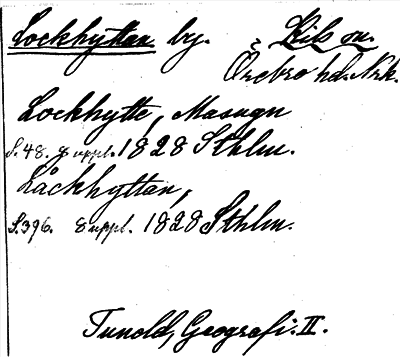 Lockhyttan by. i Kils sn.
Örebro hd. Nrk.
Lockhytte, Masugn
S. 48. 8 uppl. 1828 Sthlm.
Låckhyttan,
S. 396. 8 uppl. 1828 Sthlm.
Tunold, Geografi. II.